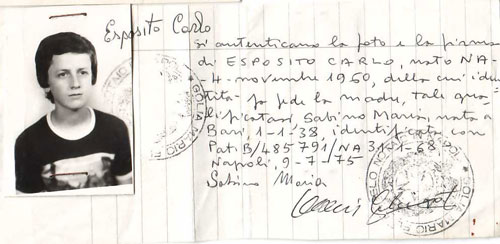 Esposito Carlo
Si autenticano la foto e la firma
di ESPOSITO CARLO, nato NA-
-4-novembre 1960, della cui iden
tità fa fede la madre, tale qua
lificatasi Sabino Maria, nata a
Bari, 1-1-38, identificata con
Pat. B/485791/NA 31-1-68.
Napoli, 9-7-75
Sabino Maria